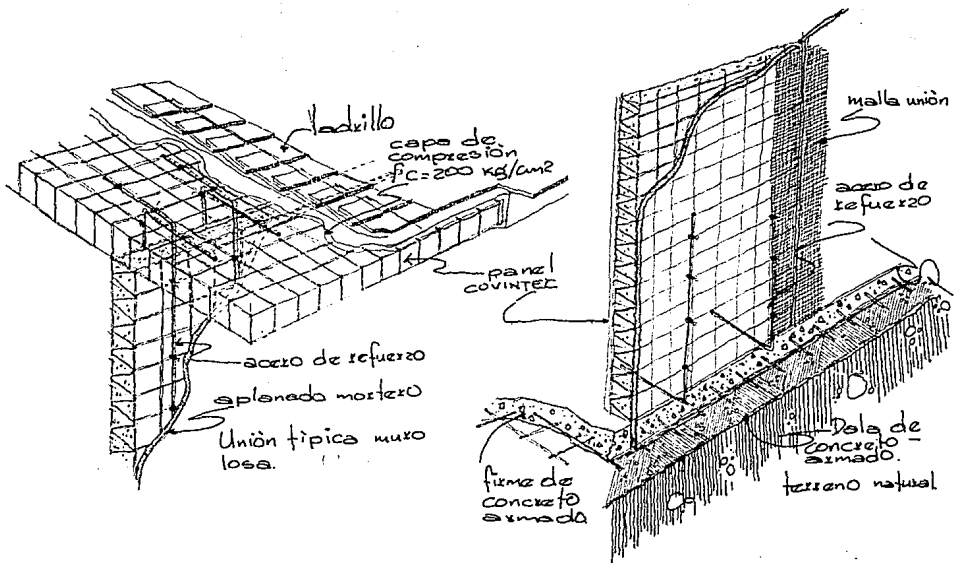 ladrillo
capa de
compresión
f'c=200 kg/cm2
panel
COVINTEC
acero de refuerzo
aplanado mortero
Unión típica muro
losa.
malla unión
acero de
refuerzo
firme de
concreto
armado
Dala de
concreto
armado.
terreno natural